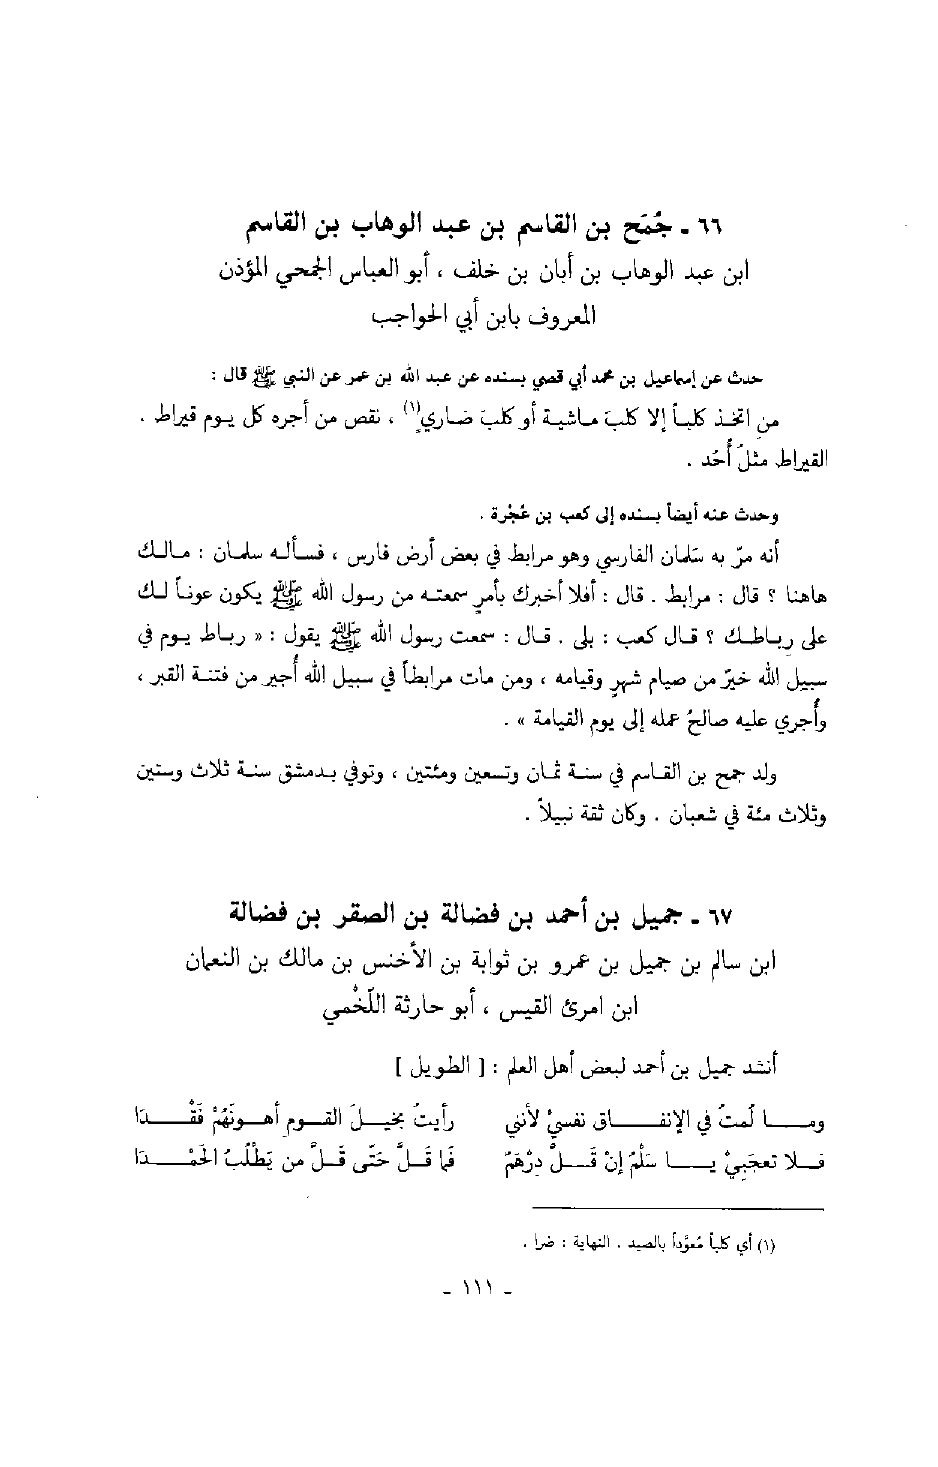 ٦٦ ـ جُمَح بن القاسم بن عبد الوهاب بن القاسم
ابن عبد الوهاب بن أبان بن خلف ، أبو العباس الجمحي المؤذن
المعروف بابن أبي الحواجب
حدث عن إسماعيل بن محمد أبي قصي بسنده عن عبد الله بن عمر عن النبي ﷺ قال :
من اتخذ كلباً إلا كلبَ ماشية أو كلبَ ضاري(١) ، نقص من أجره كل يوم قيراط .
القيراط مثلُ أُحُد .
وحدث عنه أيضاً بسنده إلى كعب بن عُجْرة .
أنه مرّ به سَلمان الفارسي وهو مرابط في بعض أرض فارس ، فسأله سلمان : مالك
هاهنا ؟ قال : مرابط . قال : أفلا أخبرك بأمرٍ سمعته من رسول الله ﷺ يكون عوناً لك
على رباطك ؟ قال كعب : بلى . قال : سمعت رسول الله ﷺ يقول : « رباط يوم في
سبيل الله خيرٌ من صيام شهرٍ وقيامه ، ومن مات مرابطاً في سبيل الله أُجير من فتنة القبر ،
وأُجري عليه صالحُ عمله إلى يوم القيامة » .
ولد جمح بن القاسم في سنة ثمان وتسعين ومئتين ، وتوفي بدمشق سنة ثلاث وستين
وثلاث مئة في شعبان . وكان ثقة نبيلاً .
٦٧ ـ جميل بن أحمد بن فضالة بن الصقر بن فضالة
ابن سالم بن جميل بن عمرو بن ثوابة بن الأخنس بن مالك بن النعمان
ابن امرئ القيس ، أبو حارثة اللَّخْمي
أنشد جميل بن أحمد لبعض أهل العلم : [ الطويل ]
ومـا لُمتُ في الإنفـاق نفسيْ لأنني رأيتُ بخيـلَ القـوم أهـونَهُمْ فَقْـدا
فـلا تعجَبيْ يـا سَلْمُ إنْ قَـلَّ دِرْهَمٌ فما قَـلَّ حَتّى قَـلَّ من يَطْلُبُ الحَمْـدا
(١) أي كلباً مُعوّداً بالصيد . النهاية : ضرا .
ـ ١١١ ـ